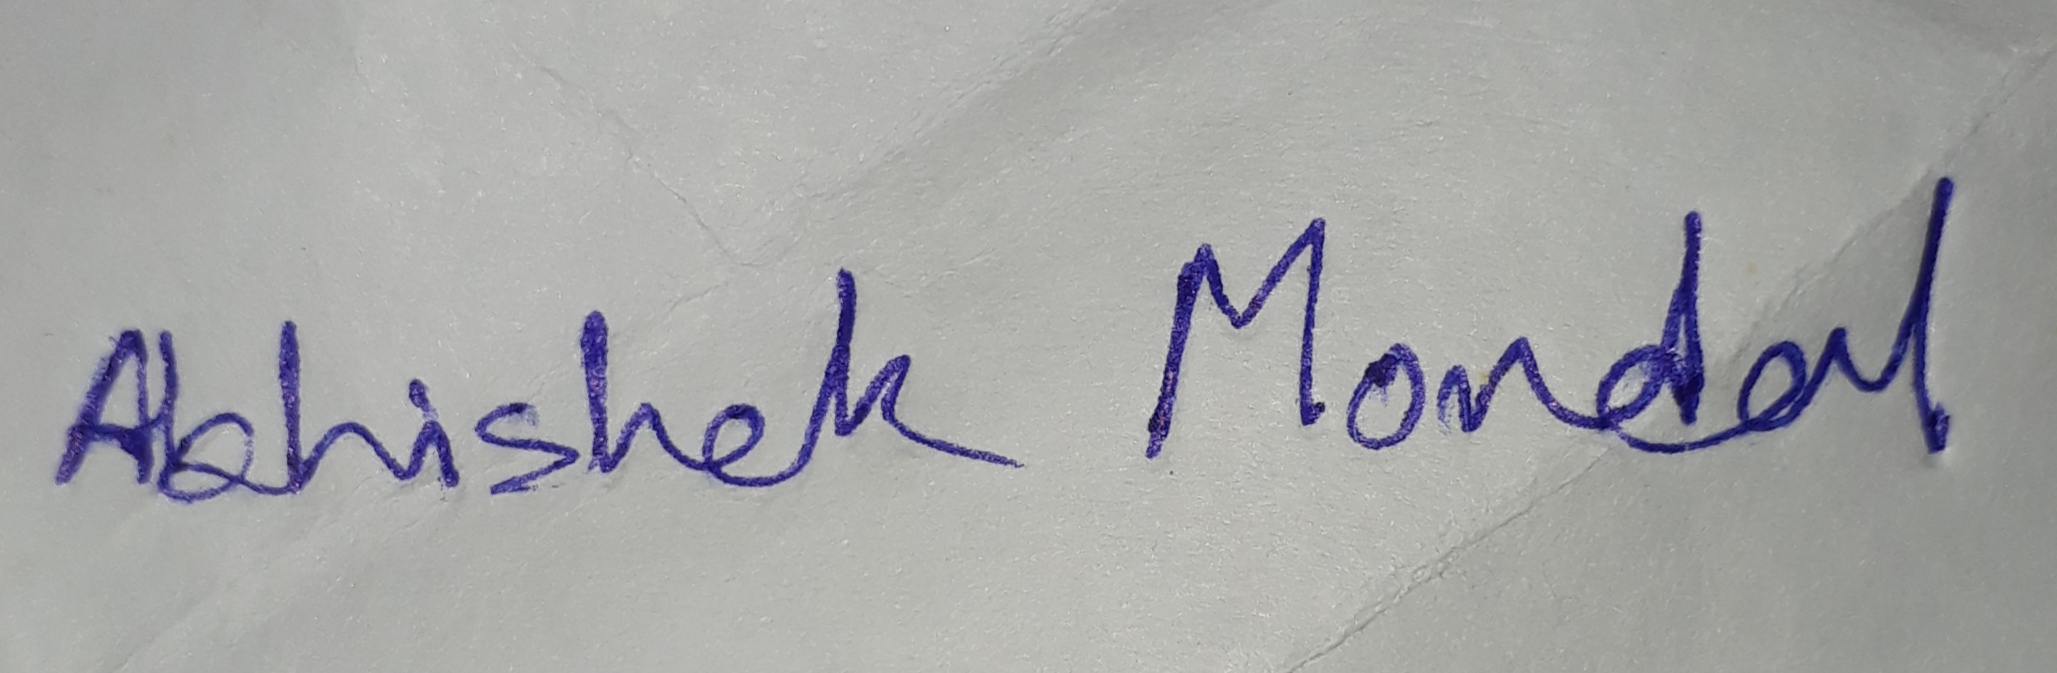 Abhishek Mondal